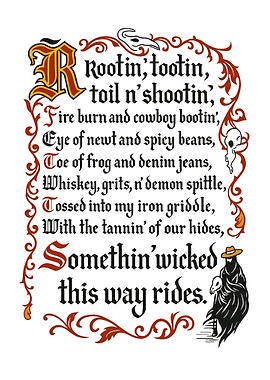 R Rootin', tootin,
toil n' shootin',
Fire burn and cowboy bootin',
Eye of newt and spicy beans,
Toe of frog and denim jeans,
Whiskey, grits, n' demon spittle,
Tossed into my iron griddle,
With the tannin' of our hides,
Somethin' wicked
this way rides.